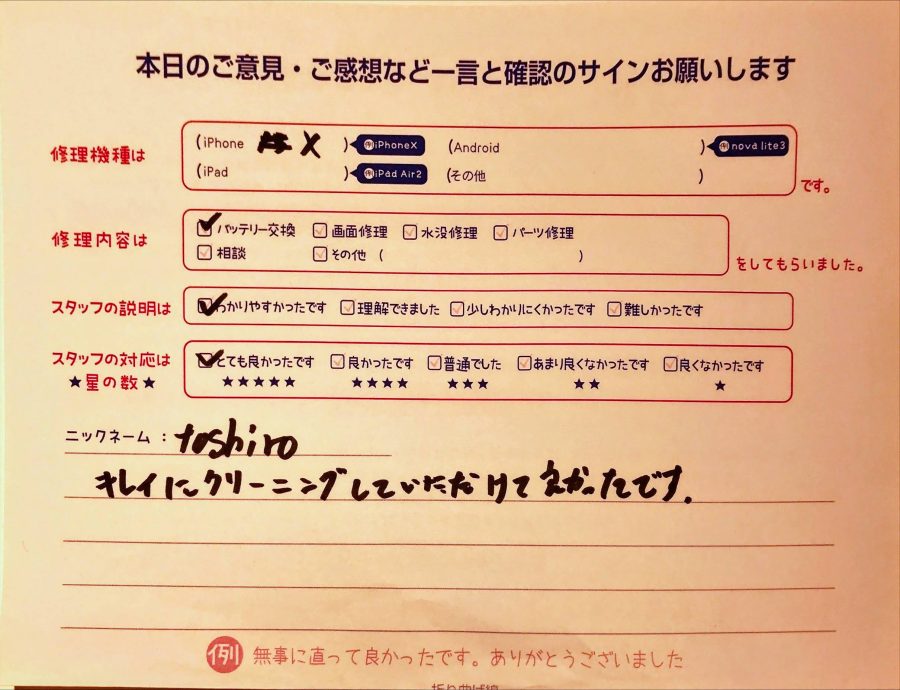 本日のご意見・ご感想など一言と確認のサインお願いします
修理機種は
(iPhone X ) 例iPhoneX (Android ) 例nova lite3
(iPad ) 例iPad Air2 (その他 ) です。
修理内容は
バッテリー交換 画面修理 水没修理 パーツ修理
相談 その他 ( ) をしてもらいました。
スタッフの説明は わかりやすかったです 理解できました 少しわかりにくかったです 難しかったです
スタッフの対応は とても良かったです 良かったです 普通でした あまり良くなかったです 良くなかったです
★星の数★ ★★★★★ ★★★★ ★★★ ★★ ★
ニックネーム : toshiro
キレイにクリーニングしていただけて良かったです.
例 無事に直って良かったです。ありがとうございました